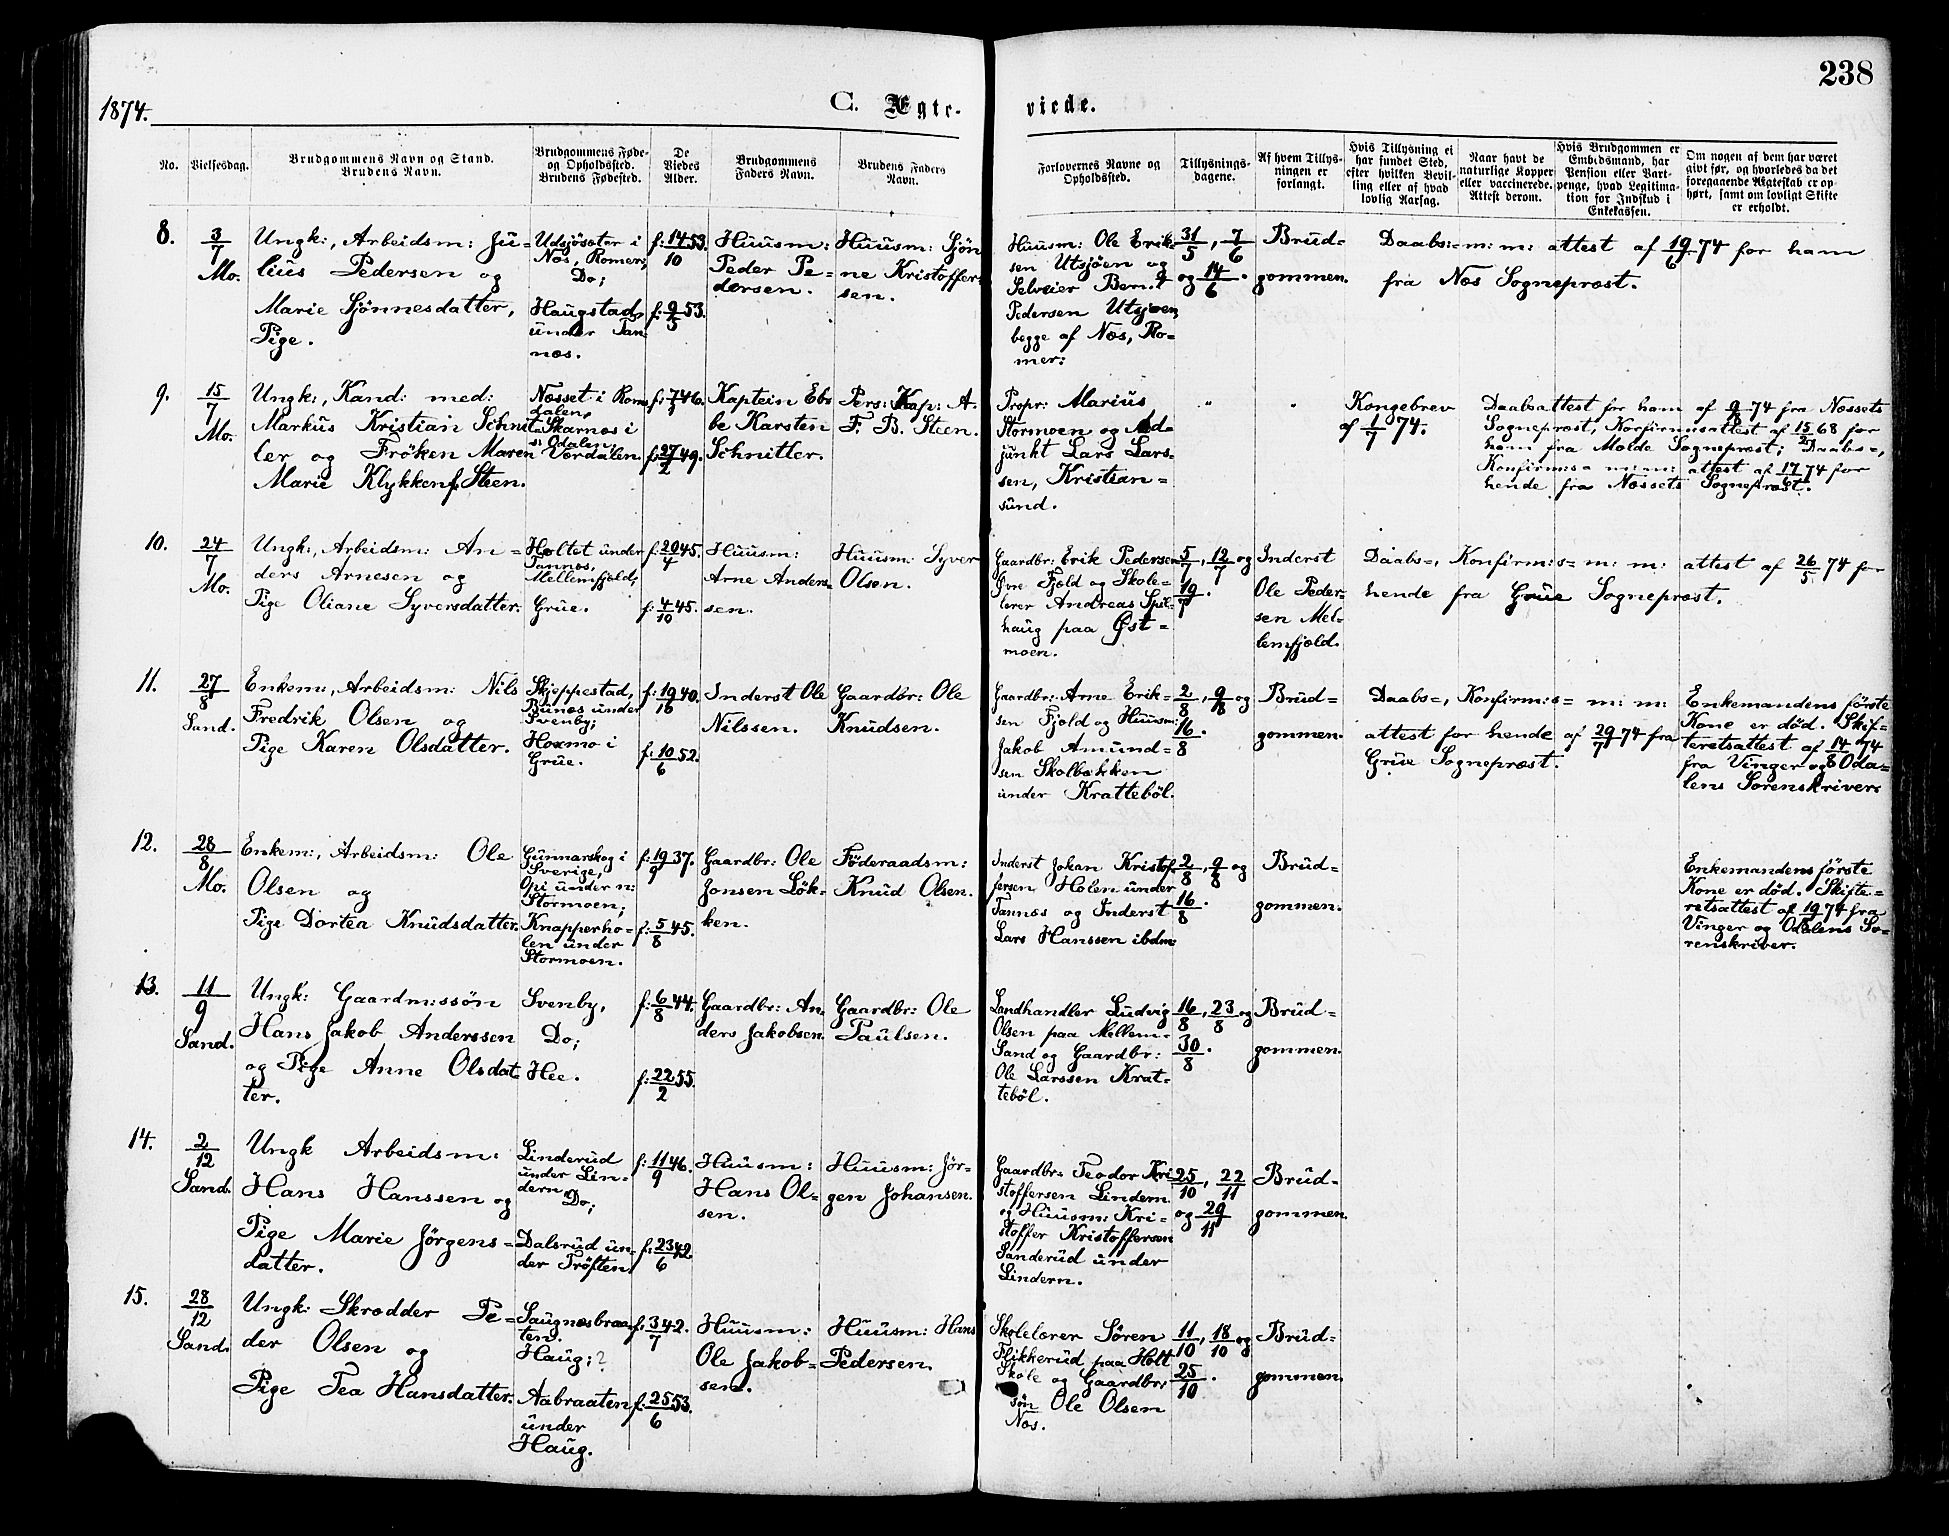 238
1874.
C. Ægte-
viede.
No.
Vielsesdag.
Brudgommens Navn og Stand.
Brudens Navn.
Brudgommens Føde-
og Opholdssted.
Brudens Fødested.
De
Viedes
Alder.
Brudgommens
Faders Navn.
Brudens Faders
Navn.
Forlovernes Navne og
Opholdssted.
Tillysnings-
dagene.
Af hvem Tillys-
ningen er
forlangt.
Hvis Tillysning ei
har fundet Sted,
efter hvilken Bevil-
ling eller af hvad
lovlig Aarsag.
Naar havt de
naturlige Kopper
eller vaccinerede.
Attest derom.
Hvis Brudgommen er
Embedsmand, har
Pension eller Vart-
penge, hvad Legitima-
tion for Indskud i
Enkekassen.
Om nogen af dem har været
givt før, og hvorledes da det
foregaaende Ægteskab er op-
hørt, samt om lovligt Skifte
er erholdt.
8.
3/7
Mo.
Ungk:, Arbeidsm: Ju-
lius Pedersen og
Marie Sjönnesdatter,
Pige.
Udsjösæter i
Næs, Romer;
Do;
Haugstad,
under Tan
næs.
f: 14/10 53.
f: 9/5 53.
Huusm:
Peder Pe-
dersen.
Huusm: Sjön
ne Kristoffer
sen.
Huusm: Ole Erik
sen Utsjöen og
Selveier Bern.t
Pedersen Utsjoen,
begge af Næs, Ro-
mer:
31/5, 7/6
og 14/6.
Brud-
gommen.
Daabs:= m: m: attest af 19/6 74 for ham
fra Næs Sognepræst.
9.
15/7
Mo.
Ungk:, Kand: med:
Markus Kristian Schnit
ler og Fröken Maren
Marie Klykken f. Steen.
Næsset i Roms
dalen,
Skarnæs i
s: Odalen;
Værdalen.
f: 7/3 46.
f: 27/2 49.
Kaptein Eb
be Karsten
Schnitler.
Pers: Kap: A.
F. B. Steen.
Propr: Marius
Stormoen og Ad-
junkt Lars Lars-
sen, Kristian=
sund.
"
"
Kongebrev
af 1/7 74.
Daabsattest for ham af 9/6 74 fra Næssets
Sognepræst, Konfirm:sattest af 15/2 68 for
ham fra Molde Sognepræst; Daabs=,
Konfirm:s= m: m: attest af 17/6 74 for
hende fra Næssets Sognepræst.
10.
24/7
Mo.
Ungk:, Arbeidsm: An =
ders Arnesen og
Pige Oliane Syversdatter.
Holtet under
Tannæs,
Mellemfjeld;
Grue.
f: 20/4 45.
f: 4/10 45.
Huusm:
Arne Anders-
sen.
Huusm: Syver
Olsen.
Gaardbr: Erik Pedersen
Øvre Fjeld og Skole-
lærer Andreas Spil-
haug paa Øst =
moen.
5/7, 12/7 og
19/7.
Inderst
Ole Peder-
sen Mel-
lemfjeld.
Daabs=, Konfirm:s= m: m: attest af 26/5 74 for
hende fra Grue Sognepræst.
11.
27/8
Sand.
Enkem:, Arbeidsm: Nils
Fredrik Olsen og
Pige Karen Olsdatter.
Skjeppestad,
Bunæs under
Svenby;
Hoxmo i
Grue.
f: 19/10 40.
f: 10/6 52.
Inderst Ole
Nilssen.
Gaardbr: Ole
Knudsen.
Gaardbr: Arne Erik-
sen Fjeld og Huusm:
Jakob Amund-
sen Skolbækken
under Kratteböl.
2/8, 9/8 og
16/8.
Brud-
gommen.
Daabs=, Konfirm:s= m: m:
attest for hende af 29/7 74 fra
Grue Sognepræst.
Enkemandens förste
Kone er död. Skif-
teretsattest af 14/8 74
fra Vinger og Oda=
lens Sorenskriver.
12.
28/8
Mo.
Enkem:, Arbeidsm: Ole
Olsen og
Pige Dortea Knudsdatter.
Gunnarskog i
Sverige,
Opi under n:
Stormoen;
Knapperho-
len under
Stormoen.
f: 19/9 37.
f: 5/8 45.
Gaardbr: Ole
Jonsen Lök-
ken.
Föderaadsm:
Knud Olsen.
Inderst Johan Kristof
fersen Holen under
Tannæs og Inderst
Lars Hanssen ibdm:
2/8, 9/8 og
16/8.
Brud-
gommen.
Enkemandens förste
Kone er död. Skifte-
retsattest af 19/5 74 fra
Vinger og Odalens So-
renskriver.
13.
11/9
Sand.
Ungk: Gaardm:ssön
Hans Jakob Anderssen
og Pige Anne Olsdat
ter.
Svenby,
Do;
Hee.
f: 6/8 44.
f: 22/2 55.
Gaardbr: An
ders Jakobsen.
Gaardbr: Ole
Paulsen.
Landhandler Ludvig
Olsen paa Mellem-
Sand og Gaardbr:
Ole Larssen Krat-
teböl.
16/8, 23/8 og
30/8.
Brud-
gommen.
14.
2/12
Sand.
Ungk Arbeidsm:
Hans Hanssen og
Pige Marie Jörgens-
datter.
Linderud
under Lin-
dern,
Do;
Dalsrud un-
der Tröften.
f: 11/9 46.
f: 23/6 42.
Huusm:
Hans Ol-
sen.
Huusm: Jör-
gen Johansen.
Gaardbr: Teodor Kri
stoffersen Lindern
og Huusm: Kri-
stoffer Kristoffersen
Sanderud under
Lindern.
25/10, 22/11
og 29/11
Brud-
gommen.
15.
28/12
Sand.
Ungk: Skrædder Pe-
der Olsen og
Pige Tea Hansdatter.
Saugnæsbraa
ten.
Haug;?
Aabraaten
under
Haug.
f: 3/7 42.
f: 25/6 53.
Huusm:
Ole Jakob-
sen.
Huusm: Hans
Pedersen.
Skolelærer Sören
Flikkerud paa Holt
Skole og Gaardbr:
sön Ole Olsen
Næs.
11/10, 18/10 og
25/10.
Brud-
gommen.